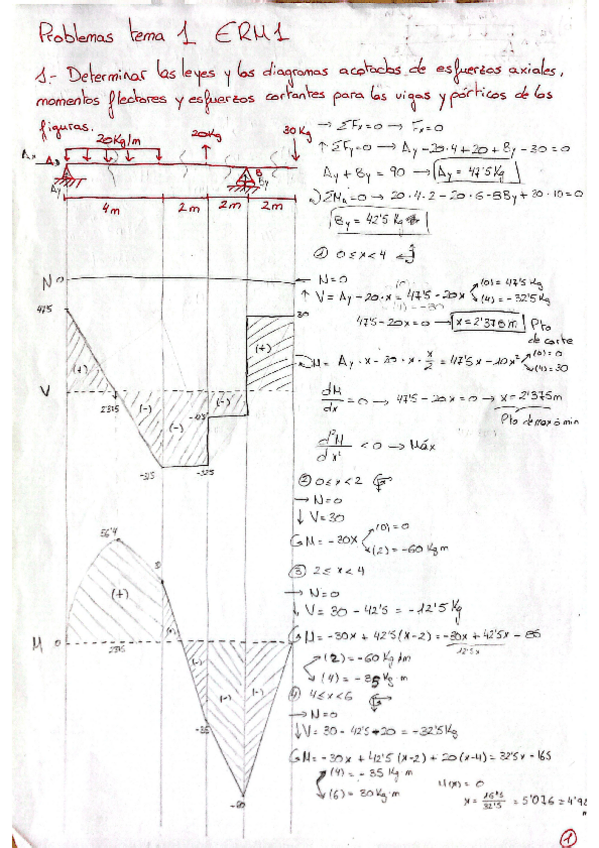 Problemas tema 1 ERM1
1.- Determinar las leyes y los diagramas acotados de esfuerzos axiales,
momentos flectores y esfuerzos cortantes para las vigas y pórticos de las
figuras.
20Kg/m
20Kg
30Kg
Ax
A
B
Ay
By
4m
2m
2m
2m
→ ΣFx=0 → Fx=0
↑ ΣFy=0 → Ay-20·4+20+By-30=0
Ay+By=90 → Ay=47'5Kg
ΣMA=0 → 20·4·2-20·6-8By+30·10=0
By=42'5Kg
① 0≤x<4
N=0
↑ V=Ay-20·x=47'5-20x
(0)=47'5Kg
(4)=-32'5Kg
47'5-20x=0 → x=2'375m Pto
de corte
M=Ay·x-20·x·x/2=47'5x-10x²
(0)=0
(4)=30
dM/dx=0 → 47'5-20x=0 → x=2'375m
Pto de max ó min
d²M/dx²<0 → Máx
② 0≤x<2
→ N=0
↓ V=30
M=-30x
(0)=0
(2)=-60Kg·m
③ 2≤x<4
→ N=0
↓ V=30-42'5=-12'5Kg
M=-30x+42'5(x-2)=-30x+42'5x-85
12'5x
(2)=-60Kg·m
(4)=-35Kg·m
④ 4≤x<6
→ N=0
↓V=30-42'5-20=-32'5Kg
M=-30x+42'5(x-2)+20(x-4)=32'5x-165
(4)=-35Kg·m
(6)=30Kg·m
M(x)=0
N
0
47'5
30
V
(+)
2'375
(-)
(-)
(-)
(+)
-32'5
56'4
(+)
M
0
2'375
(-)
(-)
(-)
-35
-60
①